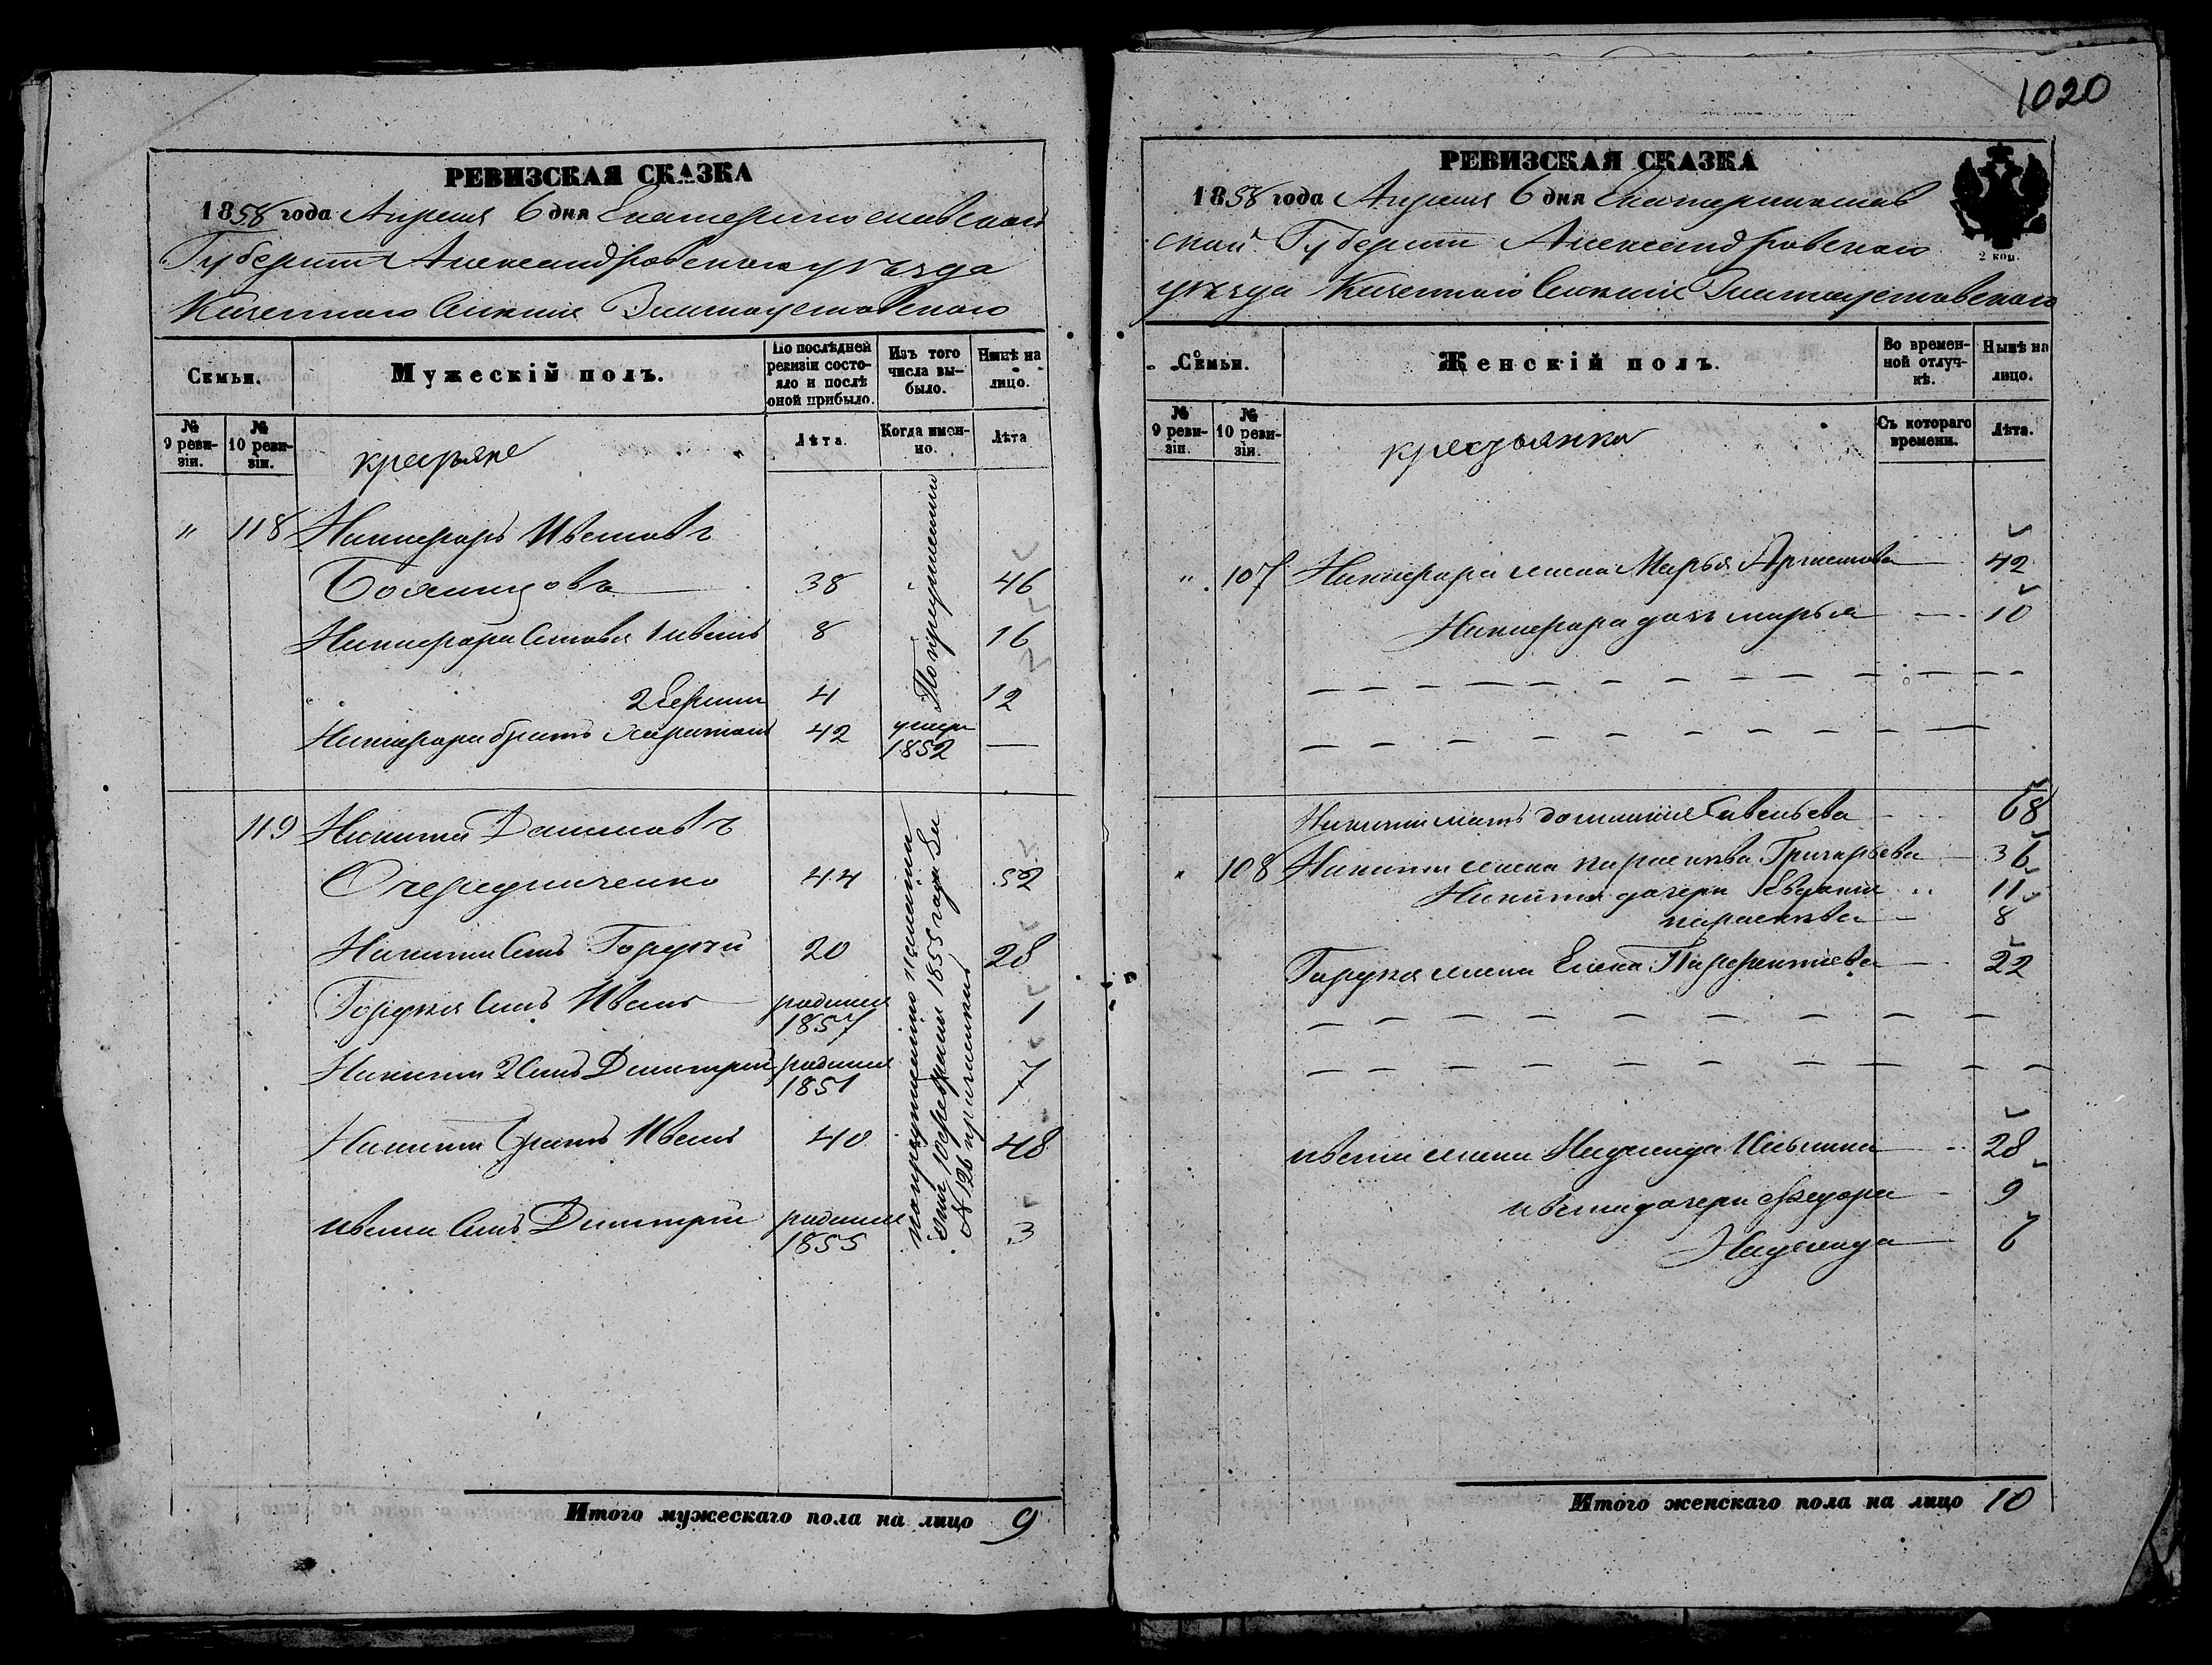 РЕВИЗСКАЯ СКАЗКА
1858 года Апреля 6 дня Екатеринославской
Губернии Александровского уѣзда
Казенного Селения Златоустовского
Семьи.
Мужескій полъ.
По послѣдней ревизіи состояло и послѣ оной прибыло.
Изъ того числа выбыло.
Нынѣ на лицо.
№ 9 ревизіи.
№ 10 ревизіи.
крестьяне
Лѣта.
Когда именно.
Лѣта
" 118 Никифоръ Ивановъ
38 46
Никифора Сыновья 1 Иванъ 8 16
2 4 12
Никифора братъ Харитонъ 42 умеръ 1852 —
119 Никита Даниловъ
Очередниченко 44 52
Никиты Сынъ Гордѣй 20 28
Гордѣя Сынъ Иванъ родился 1857 1
Никиты 2 Сынъ Дмитрій родился 1851 7
Никиты братъ Иванъ 40 48
Ивана Сынъ Дмитрій родился 1855 3
Итого мужескаго пола на лицо 9
1020
РЕВИЗСКАЯ СКАЗКА
1858 года Апреля 6 дня Екатеринослав
ской Губернии Александровского
уѣзда Казенного Селения Златоустовского
2 коп.
Семьи.
Женскій полъ.
Во временной отлучкѣ.
Нынѣ на лицо.
№ 9 ревизіи.
№ 10 ревизіи.
крестьянки
Съ котораго времени.
Лѣта.
" 107 Никифора жена Марья 42
Никифора дочь Марья 10
Никиты мать Савельева 68
" 108 Никиты жена Парасковья Григорьева 36
Никиты дочери 11
Парасковья 8
Гордѣя жена Елена Парфентіева 22
Ивана жена Надежда Ильина 28
Ивана дочери Федора 9
Надежда 6
Итого женскаго пола на лицо 10